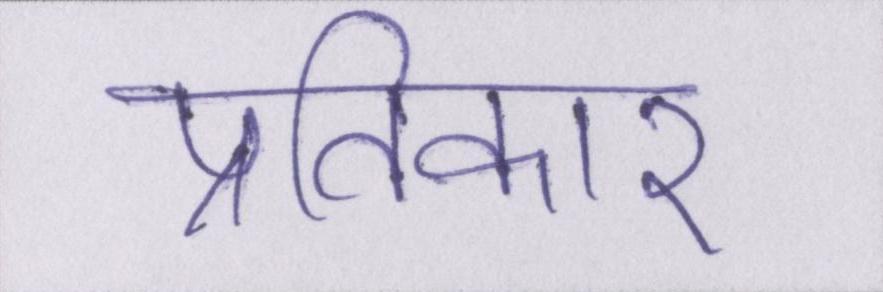 प्रतिकार